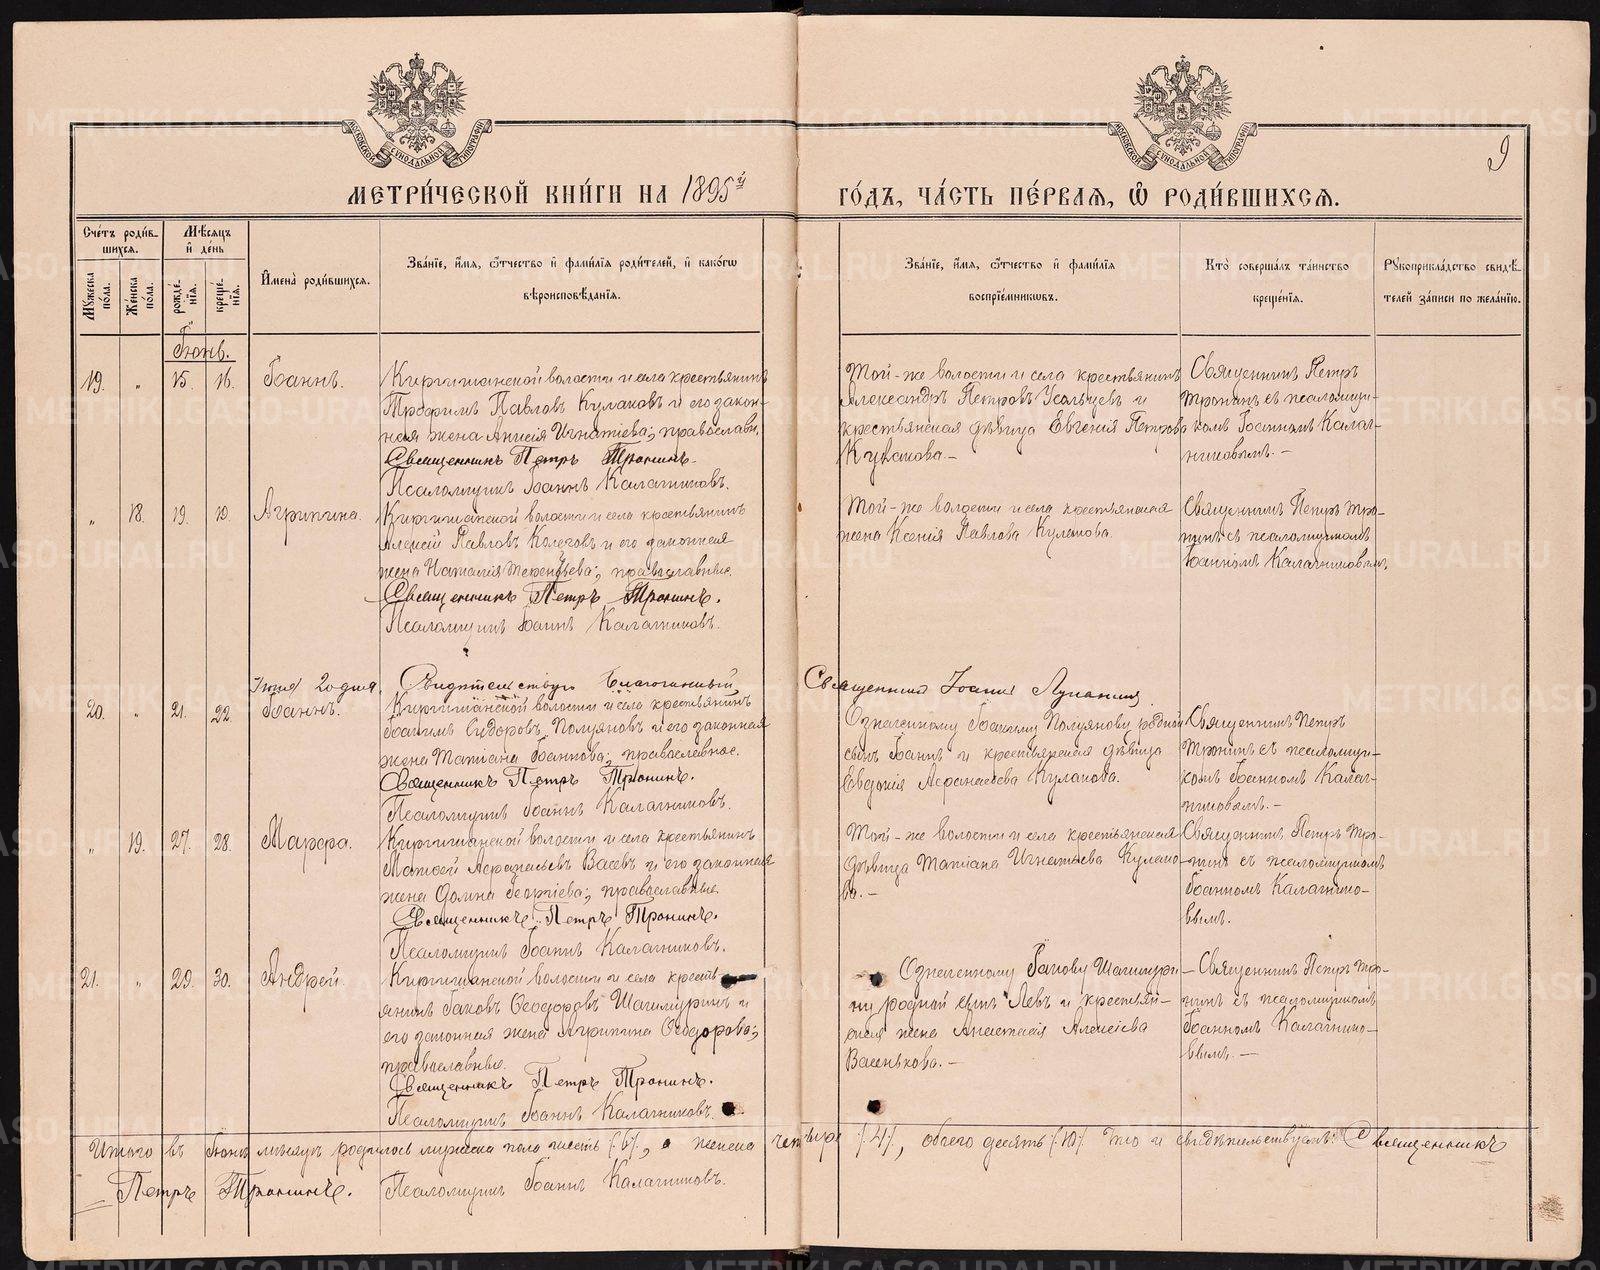 МЕТРИ́ЧЕСКОЙ КНИ́ГИ НА 1895й ГО́ДЪ, ЧА́СТЬ ПЕ́РВАЯ, Ѡ РОДИ́ВШИХСЯ.
9
МОСКОВСКОЙ СѴНОДАЛЬНОЙ ТИПОГРАФІИ
МОСКОВСКОЙ СѴНОДАЛЬНОЙ ТИПОГРАФІИ
Сче́тъ роди́в-
шихся.
Мꙋжеска по́ла.
Же́нска по́ла.
Мѣ́сяцъ
и҆ де́нь
рожде́-
нїя.
креще́-
нїя.
И҆мена̀ роди́вшихся.
Зва́нїе, и҆́мя, ѻ҆́тчество и҆ фами́лїя роди́телей, и҆ како́гѡ
вѣроисповѣ́данїя.
Зва́нїе, и҆́мя, ѻ҆́тчество и҆ фами́лїя
воспрїе́мниковъ.
Кто̀ соверша́лъ та́инство
креще́нїя.
Рꙋкоприкла́дство свидѣ́-
телей за́писи по жела́нїю.
Іюнь.
19. " 15. 16. Іоаннъ.
Киргишанской волости и села крестьянинъ
Трофимъ Павловъ Кулаковъ и его закон-
ная жена Анисія Игнатіева; православн.
Священникъ Петръ Тронинъ.
Псаломщикъ Іоаннъ Калачниковъ.
Той-же волости и села крестьянинъ
Александръ Петровъ Усольцевъ и
крестьянская дѣвица Евгенія Петрова
Кулакова.-
Священникъ Петръ
Тронинъ съ псаломщи-
комъ Іоанномъ Калач-
никовымъ.-
" 18. 19. 19. Агрипина.
Киргишанской волости и села крестьянинъ
Алексій Павловъ и его законная
жена Наталія Терентьева; православные.
Священникъ Петръ Тронинъ.
Псаломщикъ Іоаннъ Калачниковъ.
Той-же волости и села крестьянская
жена Ксенія Павлова Кулакова.
Священникъ Петръ Тро-
нинъ съ псаломщикомъ
Іоанномъ Калачниковымъ.
Іюня 20 дня. Свидѣтельствую Благочинный Священникъ Іоаннъ
20. " 21. 22. Іоаннъ.
Киргишанской волости и села крестьянинъ
Іоакимъ Сидоровъ Полуяновъ и его законная
жена Татіана Іоаннова; православные.
Священникъ Петръ Тронинъ.
Псаломщикъ Іоаннъ Калачниковъ.
Означенному Іоакиму Полуянову родной
сынъ Іоаннъ и крестьянская дѣвица
Евдокія Афанасьева Кулакова.
Священникъ Петръ
Тронинъ съ псаломщи-
комъ Іоанномъ Калач-
никовымъ.-
" 19. 27. 28. Марфа.
Киргишанской волости и села крестьянинъ
Матвей Афанасьевъ Васевъ и его законная
жена Домна Георгіева; православные.
Священникъ Петръ Тронинъ.
Псаломщикъ Іоаннъ Калачниковъ.
Той-же волости и села крестьянская
дѣвица Татіана Игнатьева Кулако-
ва.-
Священникъ Петръ Тро-
нинъ съ псаломщикомъ
Іоанномъ Калачнико-
вымъ.
21. " 29. 30. Андрей.
Киргишанской волости и села кресть-
янинъ Іаковъ Ѳеодоровъ Шашмуринъ и
его законная жена Агрипина Ѳеодорова;
православные.
Священникъ Петръ Тронинъ.
Псаломщикъ Іоаннъ Калачниковъ.
Означенному Іакову Шашмури-
ну родной сынъ Левъ и крестьян-
ская жена Анастасія Алексіева
Васенькова.-
Священникъ Петръ Тро-
нинъ съ псаломщикомъ
Іоанномъ Калачнико-
вымъ.-
Итого въ Іюнѣ мѣсяцѣ родилось мужеска пола шесть (6), а женска четыре (4), обоего десять (10) что и свидѣтельствуемъ: Священникъ
Петръ Тронинъ. Псаломщикъ Іоаннъ Калачниковъ.
METRIKI.GASO-URAL.RU